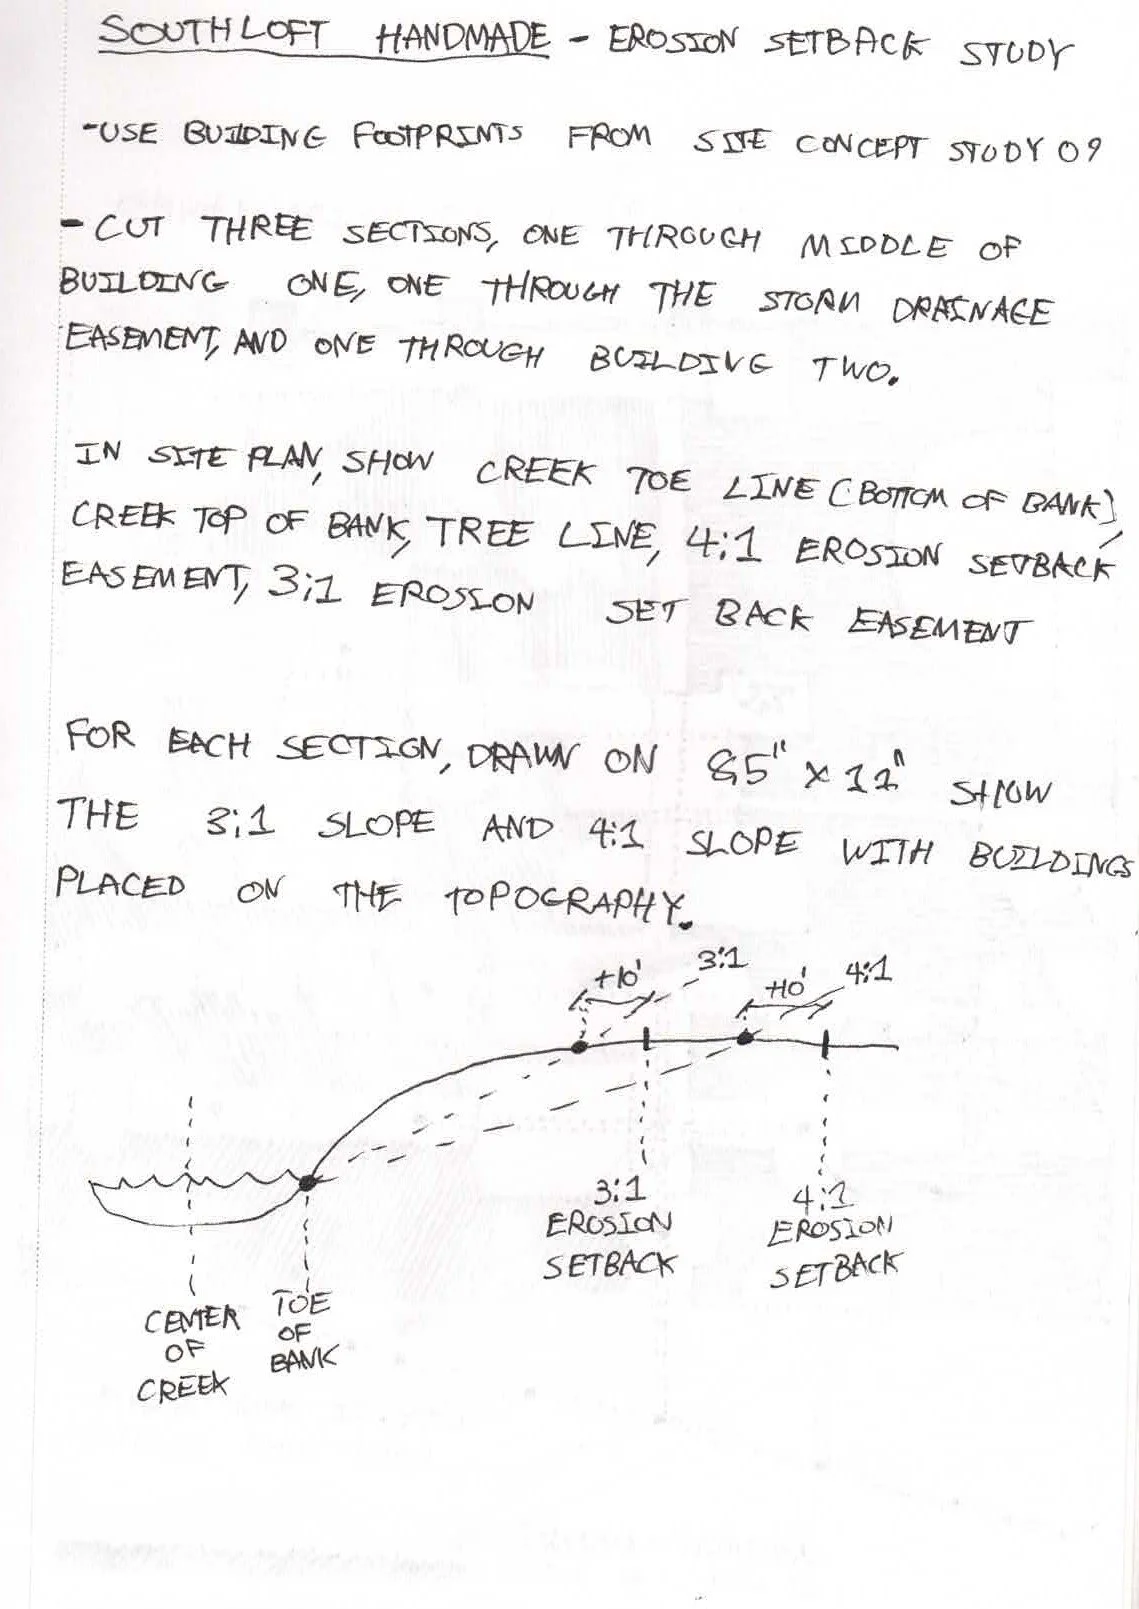 SOUTHLOFT HANDMADE - EROSION SETBACK STUDY
-USE BUILDING FOOTPRINTS FROM SITE CONCEPT STUDY 09
- CUT THREE SECTIONS, ONE THROUGH MIDDLE OF
BUILDING ONE, ONE THROUGH THE STORM DRAINAGE
EASEMENT, AND ONE THROUGH BUILDING TWO.
IN SITE PLAN, SHOW CREEK TOE LINE (BOTTOM OF BANK),
CREEK TOP OF BANK, TREE LINE, 4:1 EROSION SETBACK
EASEMENT, 3:1 EROSION SET BACK EASEMENT
FOR EACH SECTION, DRAWN ON 8.5" x 11" SHOW
THE 3:1 SLOPE AND 4:1 SLOPE WITH BUILDINGS
PLACED ON THE TOPOGRAPHY.
+10' 3:1 +10' 4:1
3:1
EROSION
SETBACK
4:1
EROSION
SETBACK
CENTER
OF
CREEK
TOE
OF
BANK